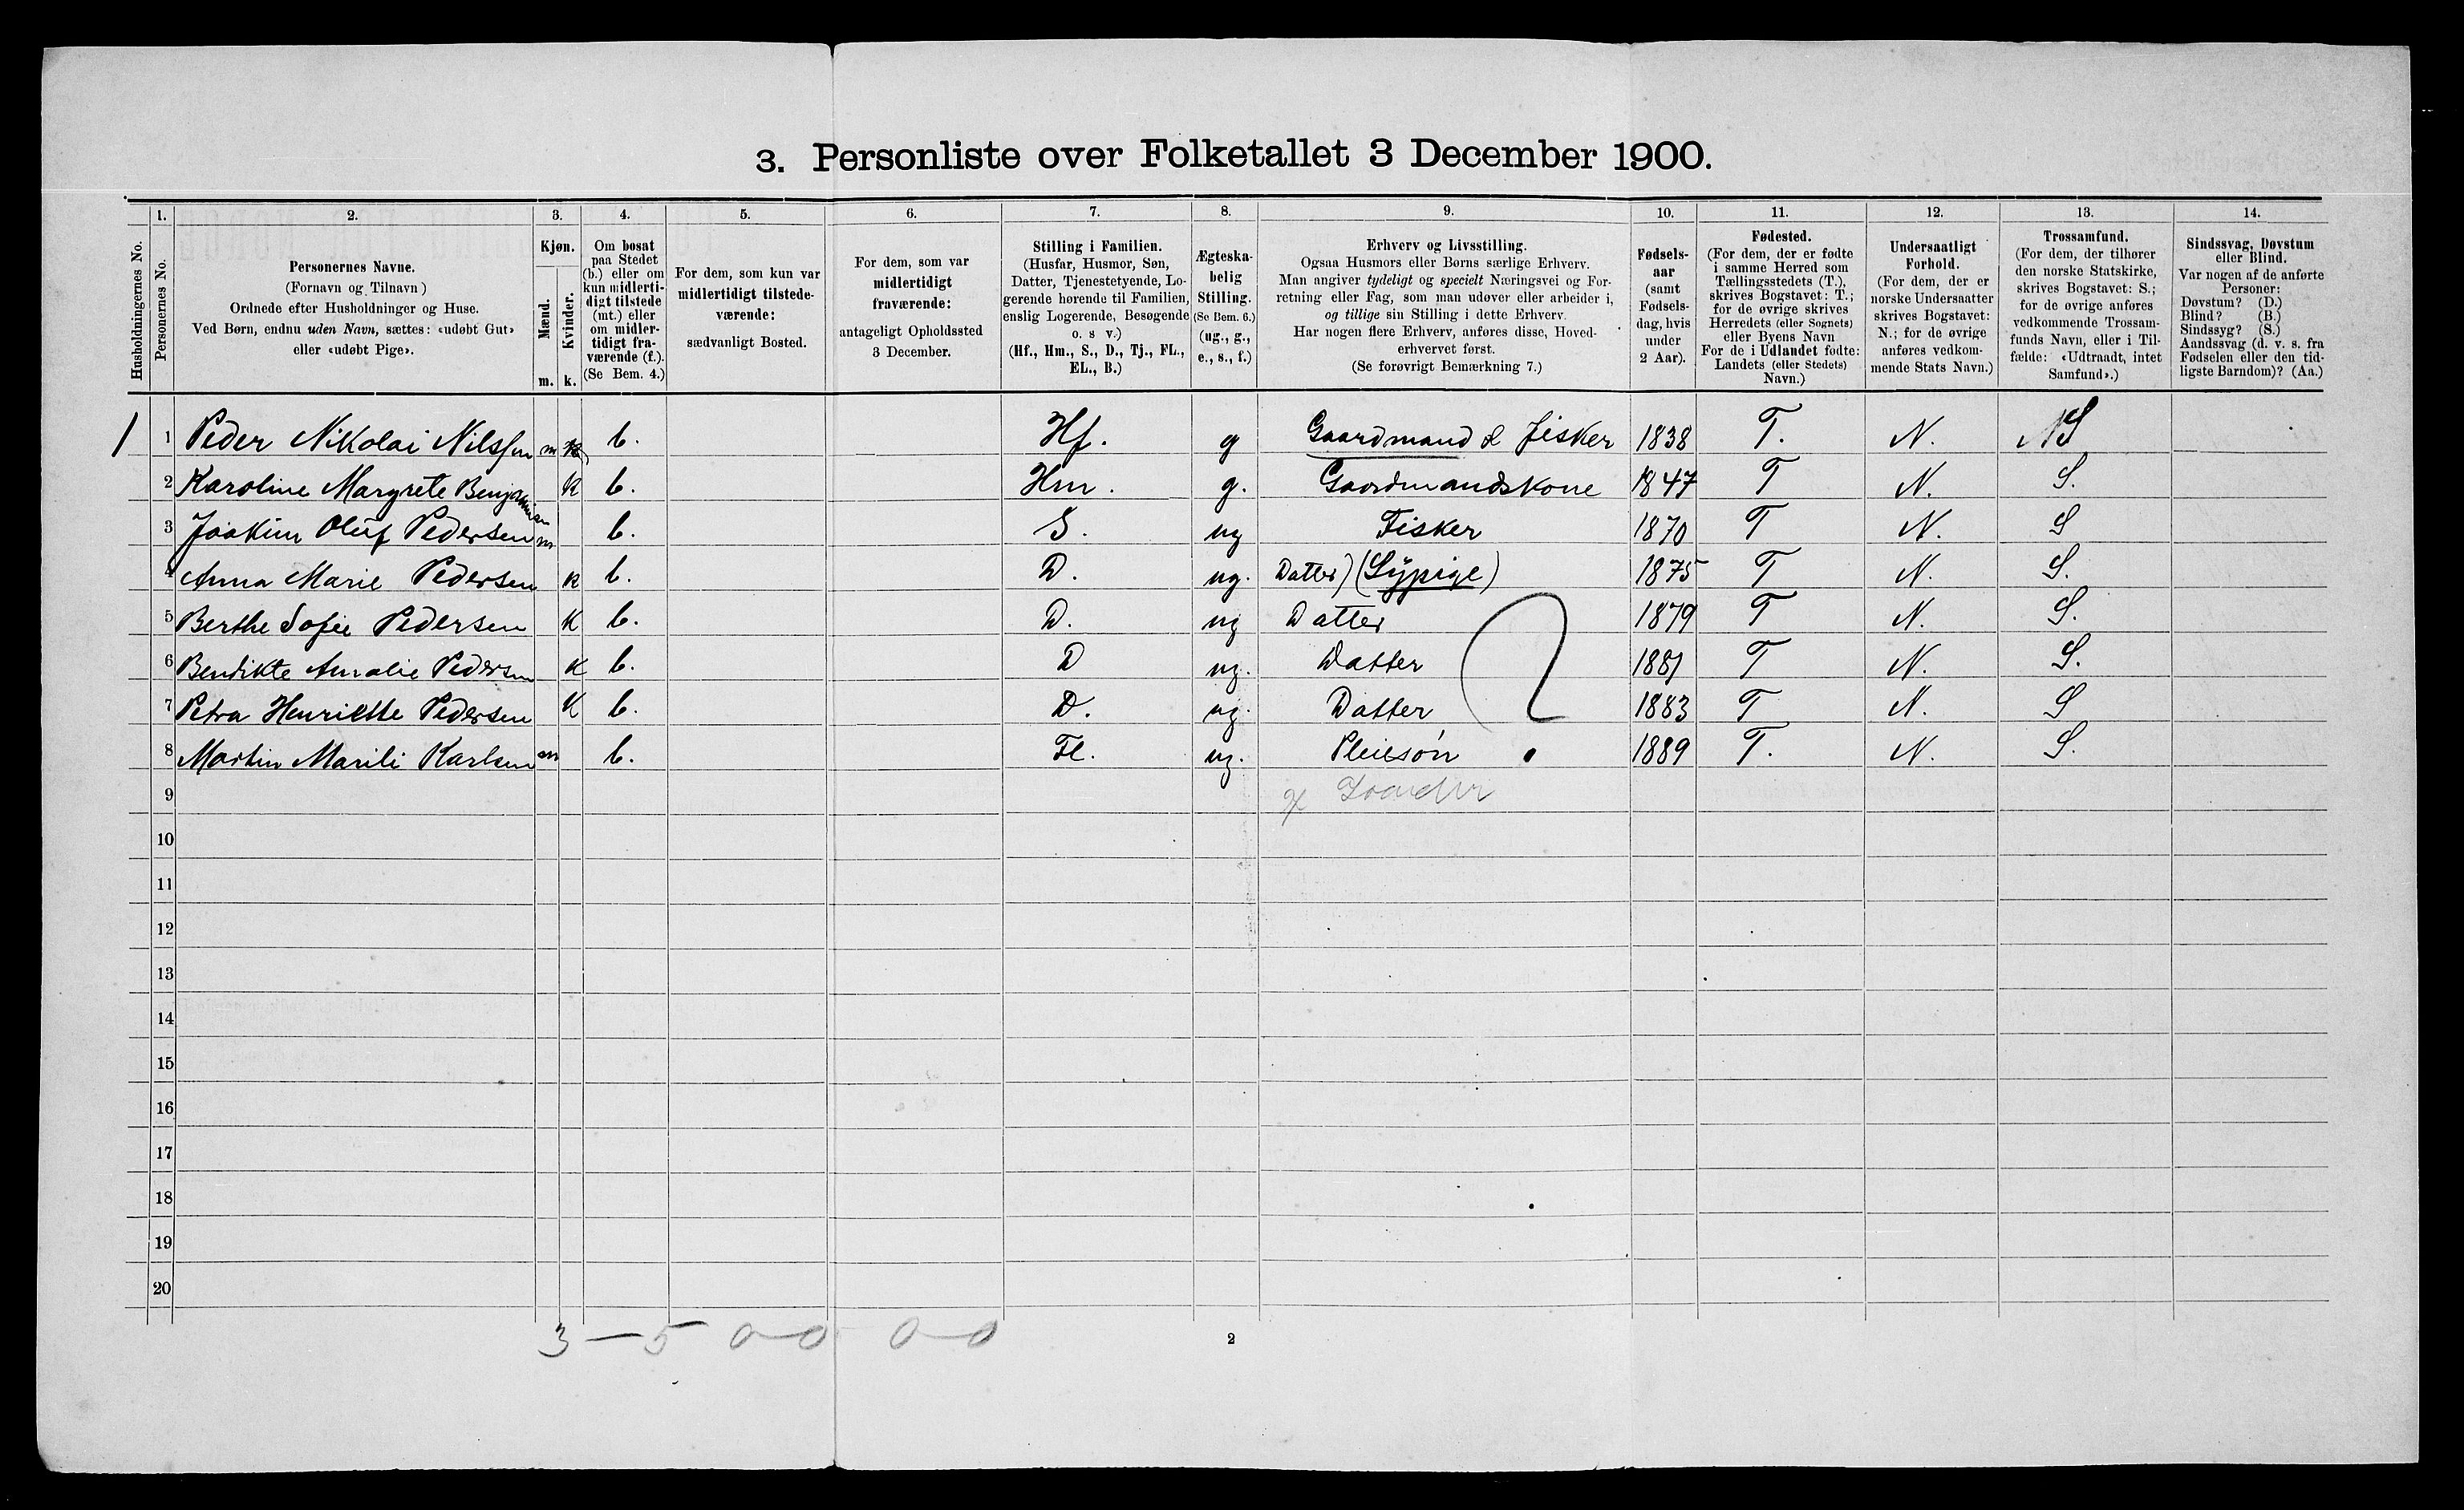 3. Personliste over Folketallet 3 December 1900.
1. 2. 3. 4. 5. 6. 7. 8. 9. 10. 11. 12. 13. 14.
Husholdningernes No.
Personernes No.
Personernes Navne.
(Fornavn og Tilnavn)
Ordnede efter Husholdninger og Huse.
Ved Børn, endnu uden Navn, sættes: «udøbt Gut»
eller «udøbt Pige».
Kjøn.
Mænd.
Kvinder.
m. k.
Om bosat
paa Stedet
(b.) eller om
kun midlerti-
digt tilstede
(mt.) eller
om midler-
tidigt fra-
værende (f.).
(Se Bem. 4.)
For dem, som kun var
midlertidigt tilstede-
værende:
sædvanligt Bosted.
For dem, som var
midlertidigt
fraværende:
antageligt Opholdssted
3 December.
Stilling i Familien.
(Husfar, Husmor, Søn,
Datter, Tjenestetyende, Lo-
gerende hørende til Familien,
enslig Logerende, Besøgende
o. s v.)
(Hf., Hm., S., D., Tj., FL.,
EL., B.)
Ægteska-
belig
Stilling.
(Se Bem. 6.)
(ug., g.,
e., s., f.)
Erhverv og Livsstilling.
Ogsaa Husmors eller Børns særlige Erhverv.
Man angiver tydeligt og specielt Næringsvei og For-
retning eller Fag, som man udøver eller arbeider i,
og tillige sin Stilling i dette Erhverv.
Har nogen flere Erhverv, anføres disse, Hoved-
erhvervet først.
(Se forøvrigt Bemærkning 7.)
Fødsels-
aar
(samt
Fødsels-
dag, hvis
under
2 Aar).
Fødested.
(For dem, der er fødte
i samme Herred som
Tællingsstedets (T.),
skrives Bogstavet: T.;
for de øvrige skrives
Herredets (eller Sognets)
eller Byens Navn
For de i Udlandet fødte:
Landets (eller Stedets)
Navn.)
Undersaatligt
Forhold.
(For dem, der er
norske Undersaatter
skrives Bogstavet:
N.; for de øvrige
anføres vedkom-
mende Stats Navn.)
Trossamfund.
(For dem, der tilhører
den norske Statskirke,
skrives Bogstavet: S.;
for de øvrige anføres
vedkommende Trossam-
funds Navn, eller i Til-
fælde: «Udtraadt, intet
Samfund».)
Sindssvag, Døvstum
eller Blind.
Var nogen af de anførte
Personer:
Døvstum? (D.)
Blind? (B.)
Sindssyg? (S.)
Aandssvag (d. v. s. fra
Fødselen eller den tid-
ligste Barndom)? (Aa.)
1 1 Peder Nikolai Nilssen m k b. Hf. g Gaardmand & fisker 1838 T. N. NS
2 Karoline Margrete Benjaminsen k b. Hm. g. Gaardmandskone 1847 T N. S.
3 Joakim Oluf Pedersen m b. S. ug Fisker 1870 T N. S
4 Anna Marie Pedersen k b. D. ug. Datter) (Sÿpige) 1875 T N. S.
5 Berthe Sofie Pedersen k b. D. ug Datter 1879 T N. S.
6 Bendikte Amalie Pedersen k b. D ug. Datter 1881 T N. S.
7 Petra Henriette Pedersen k b. D. ug. Datter ? 1883 T N. S
8 Martin Marili Karlsen m b. Fl. ug. Pleiesøn 1889 T. N. S.
9
10
11
12
13
14
15
16
17
18
19
20
3 – 5 0–0 0–0
2